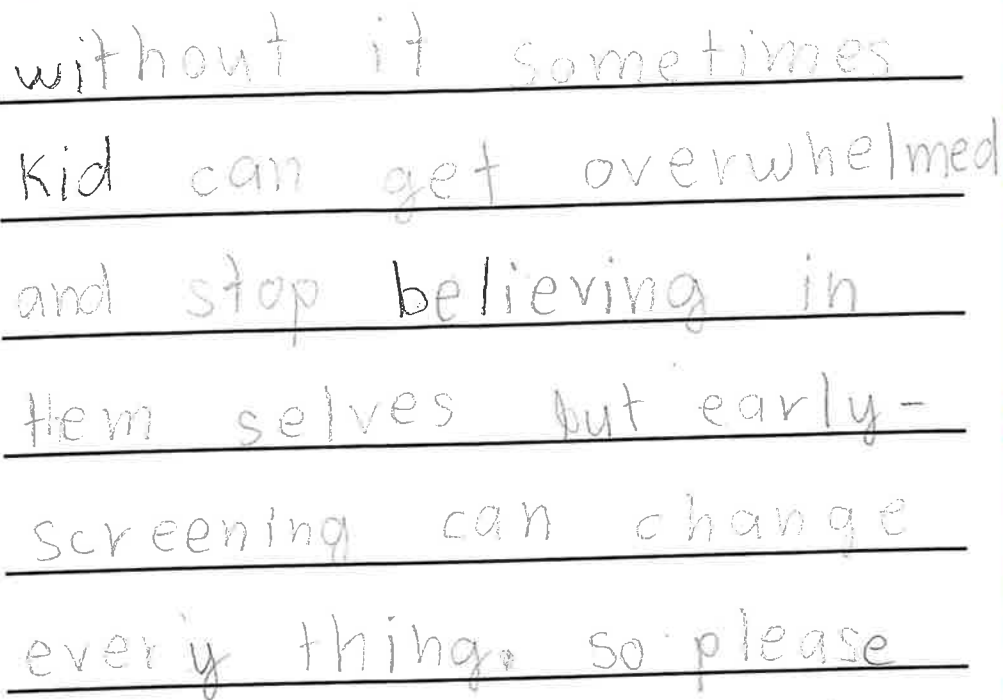 without it sometimes
kid can get overwhelmed
and stop believing in
them selves but early-
screening can change
every thing. so please